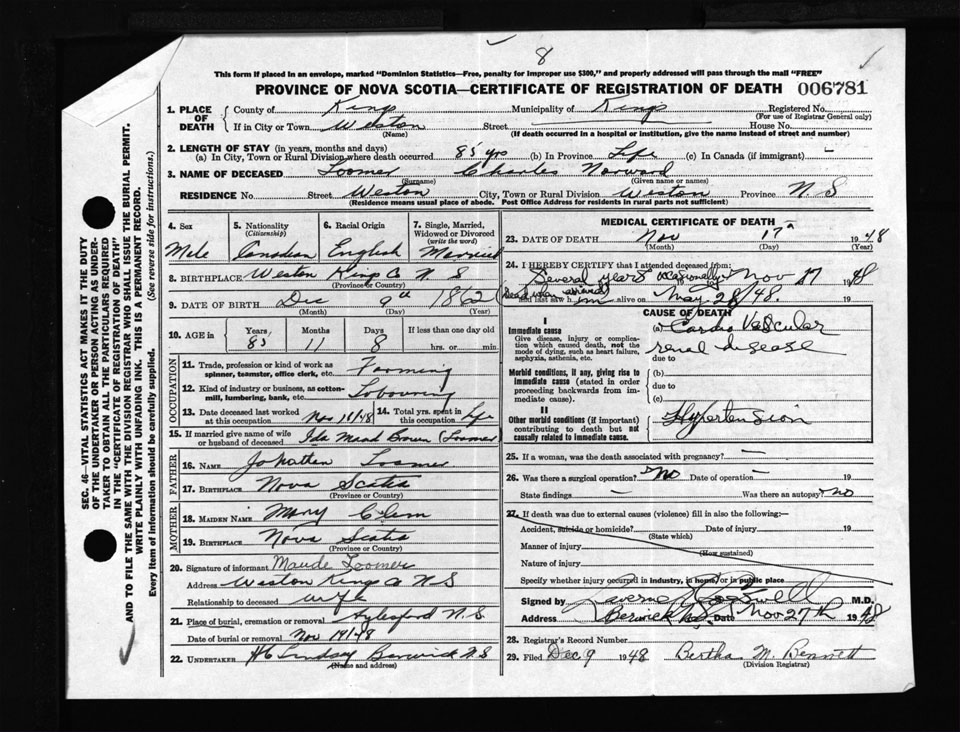 8
This form if placed in an envelope, marked "Dominion Statistics—Free, penalty for improper use $300," and properly addressed will pass through the mail "FREE"
PROVINCE OF NOVA SCOTIA—CERTIFICATE OF REGISTRATION OF DEATH 006781
SEC. 46—VITAL STATISTICS ACT MAKES IT THE DUTY
OF THE UNDERTAKER OR PERSON ACTING AS UNDER-
TAKER TO OBTAIN ALL THE PARTICULARS REQUIRED
IN THE "CERTIFICATE OF REGISTRATION OF DEATH"
AND TO FILE THE SAME WITH THE DIVISION REGISTRAR WHO SHALL ISSUE THE BURIAL PERMIT.
WRITE PLAINLY WITH UNFADING INK. THIS IS A PERMANENT RECORD.
Every item of information should be carefully supplied. (See reverse side for instructions.)
1. PLACE OF DEATH County of Kings Municipality of Kings Registered No.
(For use of Registrar General only)
If in City or Town Weston Street House No.
(Name) (If death occurred in a hospital or institution, give the name instead of street and number)
2. LENGTH OF STAY (in years, months and days)
(a) In City, Town or Rural Division where death occurred 85 yrs (b) In Province Life (c) In Canada (if immigrant) —
3. NAME OF DECEASED Loomer Charles Norward
(Surname) (Given name or names)
RESIDENCE No. Street Weston City, Town or Rural Division Weston Province N.S
(Residence means usual place of abode. Post Office Address for residents in rural parts not sufficient)
4. Sex 5. Nationality (Citizenship) 6. Racial Origin 7. Single, Married, Widowed or Divorced (write the word)
Male Canadian English Married
8. BIRTHPLACE Weston Kings Co N S
(Province or Country)
9. DATE OF BIRTH Dec 9th 1862
(Month) (Day) (Year)
10. AGE in Years Months Days If less than one day old
85 11 8 hrs. or min.
OCCUPATION
11. Trade, profession or kind of work as spinner, teamster, office clerk, etc. Farming
12. Kind of industry or business, as cotton-mill, lumbering, bank, etc. Labouring
13. Date deceased last worked at this occupation Nov 1/48 14. Total yrs. spent in this occupation Life
15. If married give name of wife or husband of deceased Ida Maud (Loomer)
FATHER
16. NAME Loomer
17. BIRTHPLACE Nova Scotia
(Province or Country)
MOTHER
18. MAIDEN NAME Mary
19. BIRTHPLACE Nova Scotia
(Province or Country)
20. Signature of informant Maude Loomer
Address Weston Kings Co N S
Relationship to deceased wife
21. Place of burial, cremation or removal Aylesford N.S
Date of burial or removal Nov 19/48
22. UNDERTAKER Lindsay Berwick N.S
(Name and address)
MEDICAL CERTIFICATE OF DEATH
23. DATE OF DEATH Nov 17th 1948
(Month) (Day) (Year)
24. I HEREBY CERTIFY that I attended deceased from:
Several years occasionally to Nov 17 1948
and last saw him alive on May 28/48.
CAUSE OF DEATH
I
Immediate cause (a) Cardio Vascular
Give disease, injury or complication which caused death, not the mode of dying, such as heart failure, asphyxia, asthenia, etc.
renal disease
due to
Morbid conditions, if any, giving rise to immediate cause (stated in order proceeding backwards from immediate cause).
(b)
due to
(c)
II
Other morbid conditions (if important) contributing to death but not causally related to immediate cause.
Hypertension
25. If a woman, was the death associated with pregnancy? —
26. Was there a surgical operation? No Date of operation — 19
State findings — Was there an autopsy? No
27. If death was due to external causes (violence) fill in also the following:—
Accident, suicide or homicide? Date of injury 19
(State which)
Manner of injury
(How sustained)
Nature of injury
Specify whether injury occurred in industry, in home, or in public place
Signed by Laverne M.D.
Address Berwick N.S. Date Nov 27th 1948
28. Registrar's Record Number
29. Filed Dec 9 1948 Bertha M. Bennett
(Division Registrar)